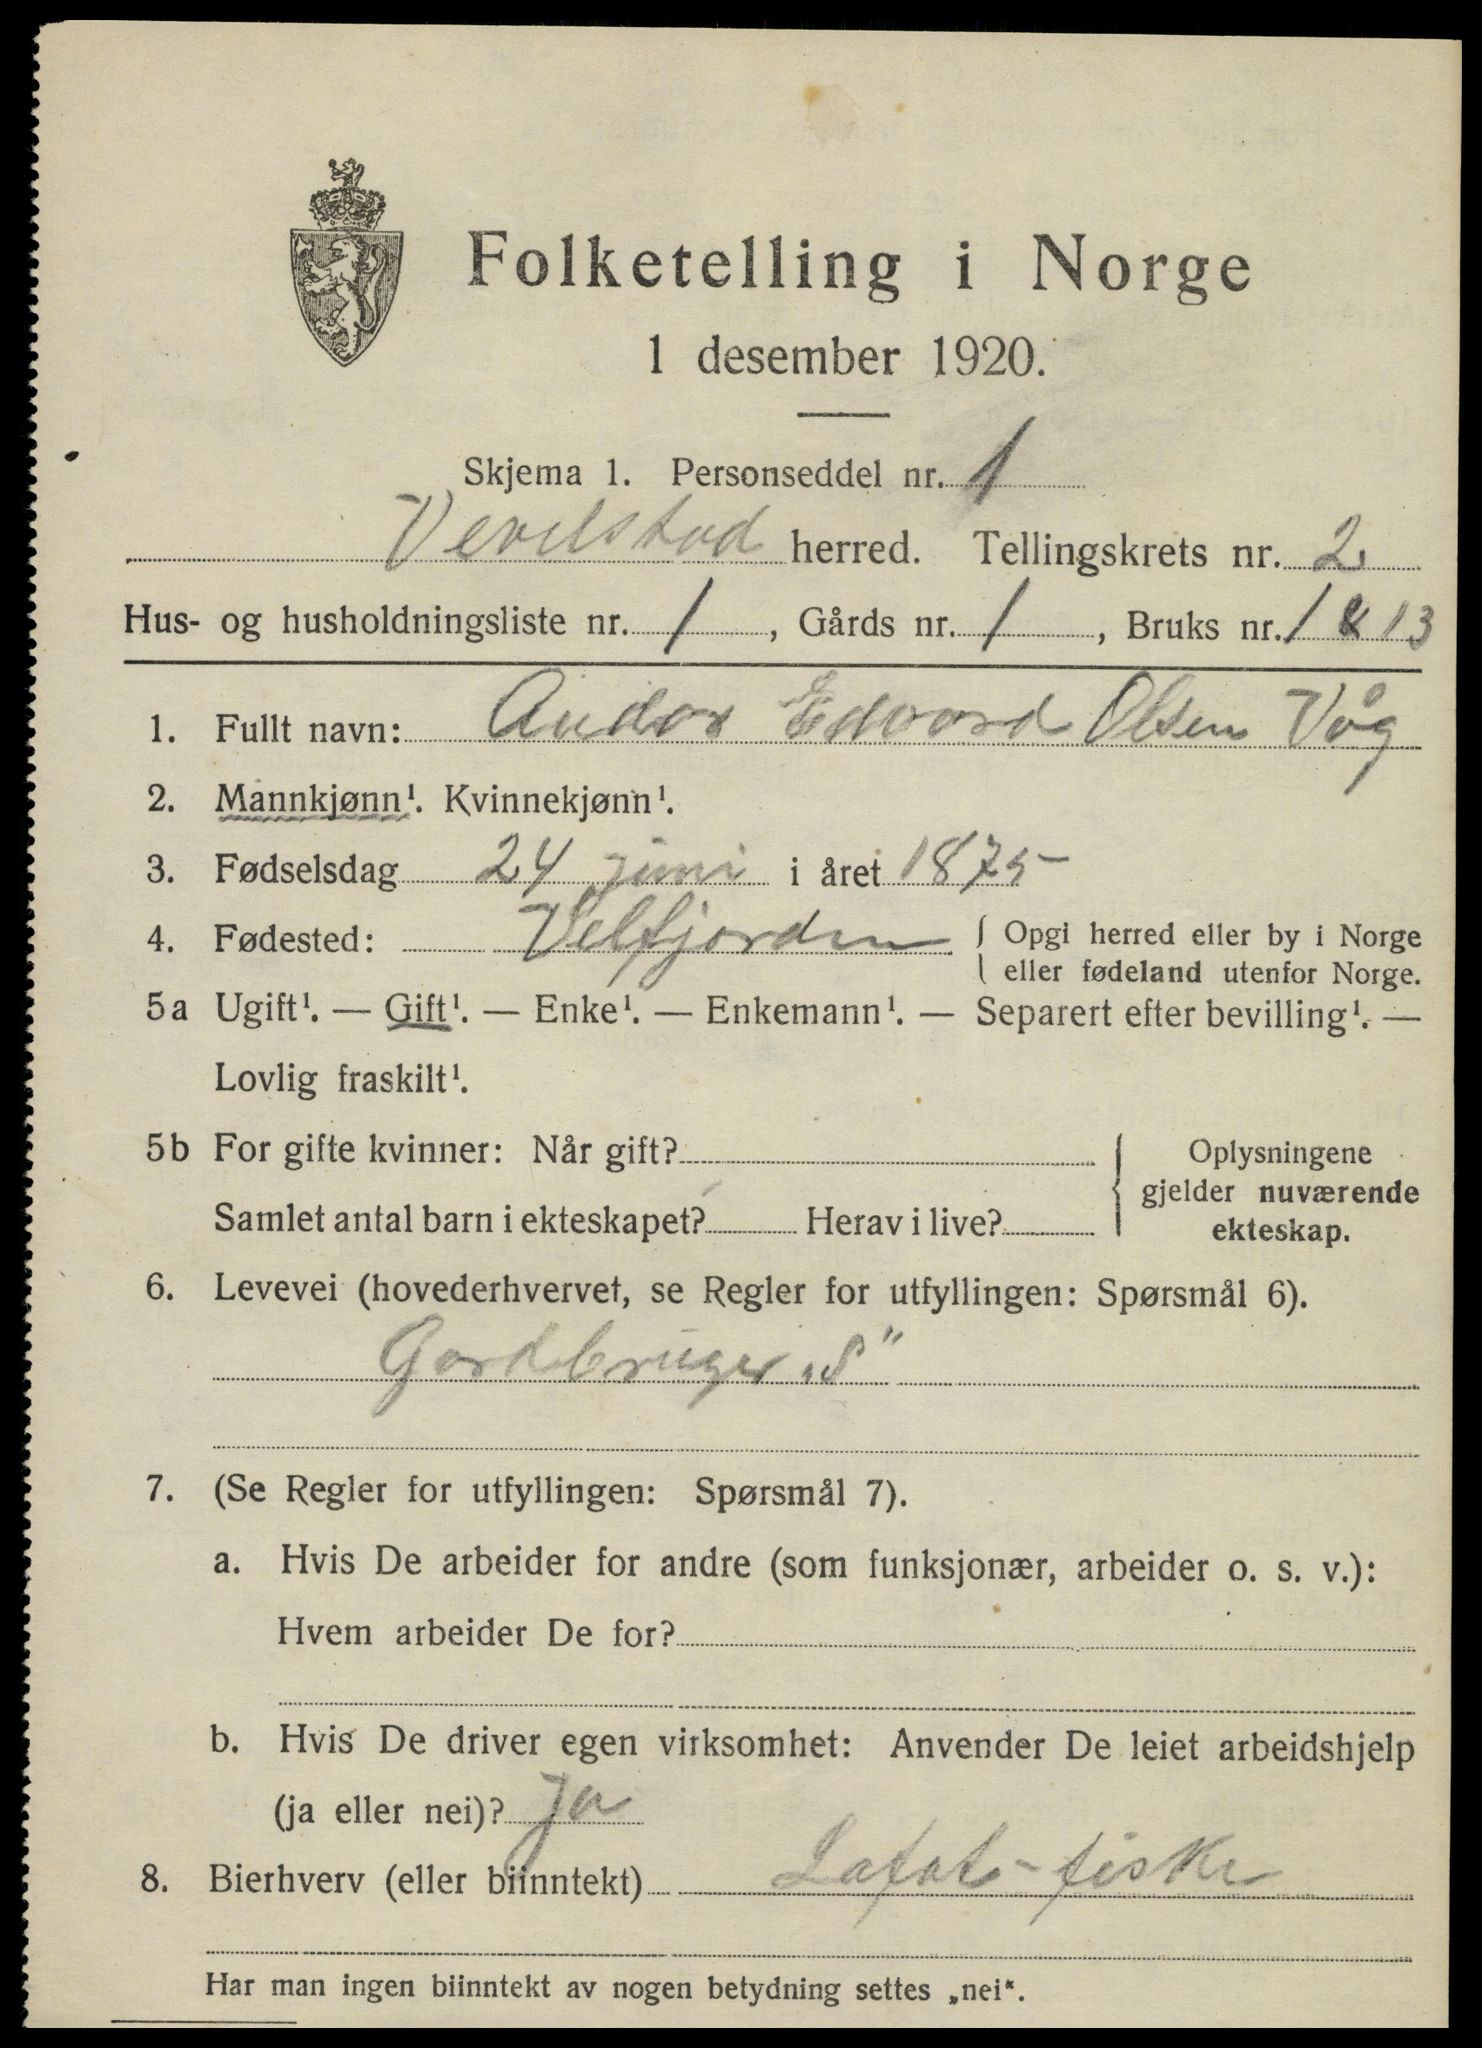 Folketelling i Norge
1 desember 1920.
Skjema 1. Personseddel nr. 1
Vevelstad herred. Tellingskrets nr. 2
Hus- og husholdningsliste nr. 1, Gårds nr. 1, Bruks nr. 1 & 13
1. Fullt navn: Andor Edvard Olsen Våg
2. Mannkjønn¹. Kvinnekjønn¹.
3. Fødselsdag 24 juni i året 1875
4. Fødested: Velfjorden { Opgi herred eller by i Norge
eller fødeland utenfor Norge.
5a Ugift¹. — Gift¹. — Enke¹. — Enkemann¹. — Separert efter bevilling¹. —
Lovlig fraskilt¹.
5b For gifte kvinner: Når gift?
Samlet antal barn i ekteskapet? Herav i live?
Oplysningene
gjelder nuværende
ekteskap.
6. Levevei (hovederhvervet, se Regler for utfyllingen: Spørsmål 6).
Gardbruger „S"
7. (Se Regler for utfyllingen: Spørsmål 7).
a. Hvis De arbeider for andre (som funksjonær, arbeider o. s. v.):
Hvem arbeider De for?
b. Hvis De driver egen virksomhet: Anvender De leiet arbeidshjelp
(ja eller nei)? Ja
8. Bierhverv (eller biinntekt) Lafot-fiske
Har man ingen biinntekt av nogen betydning settes „nei“.